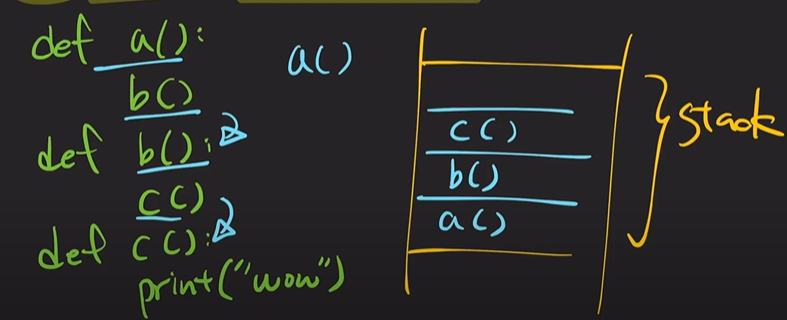 def a():
b()
def b():
c()
def c():
print("wow")
a()
c()
b()
a()
stack